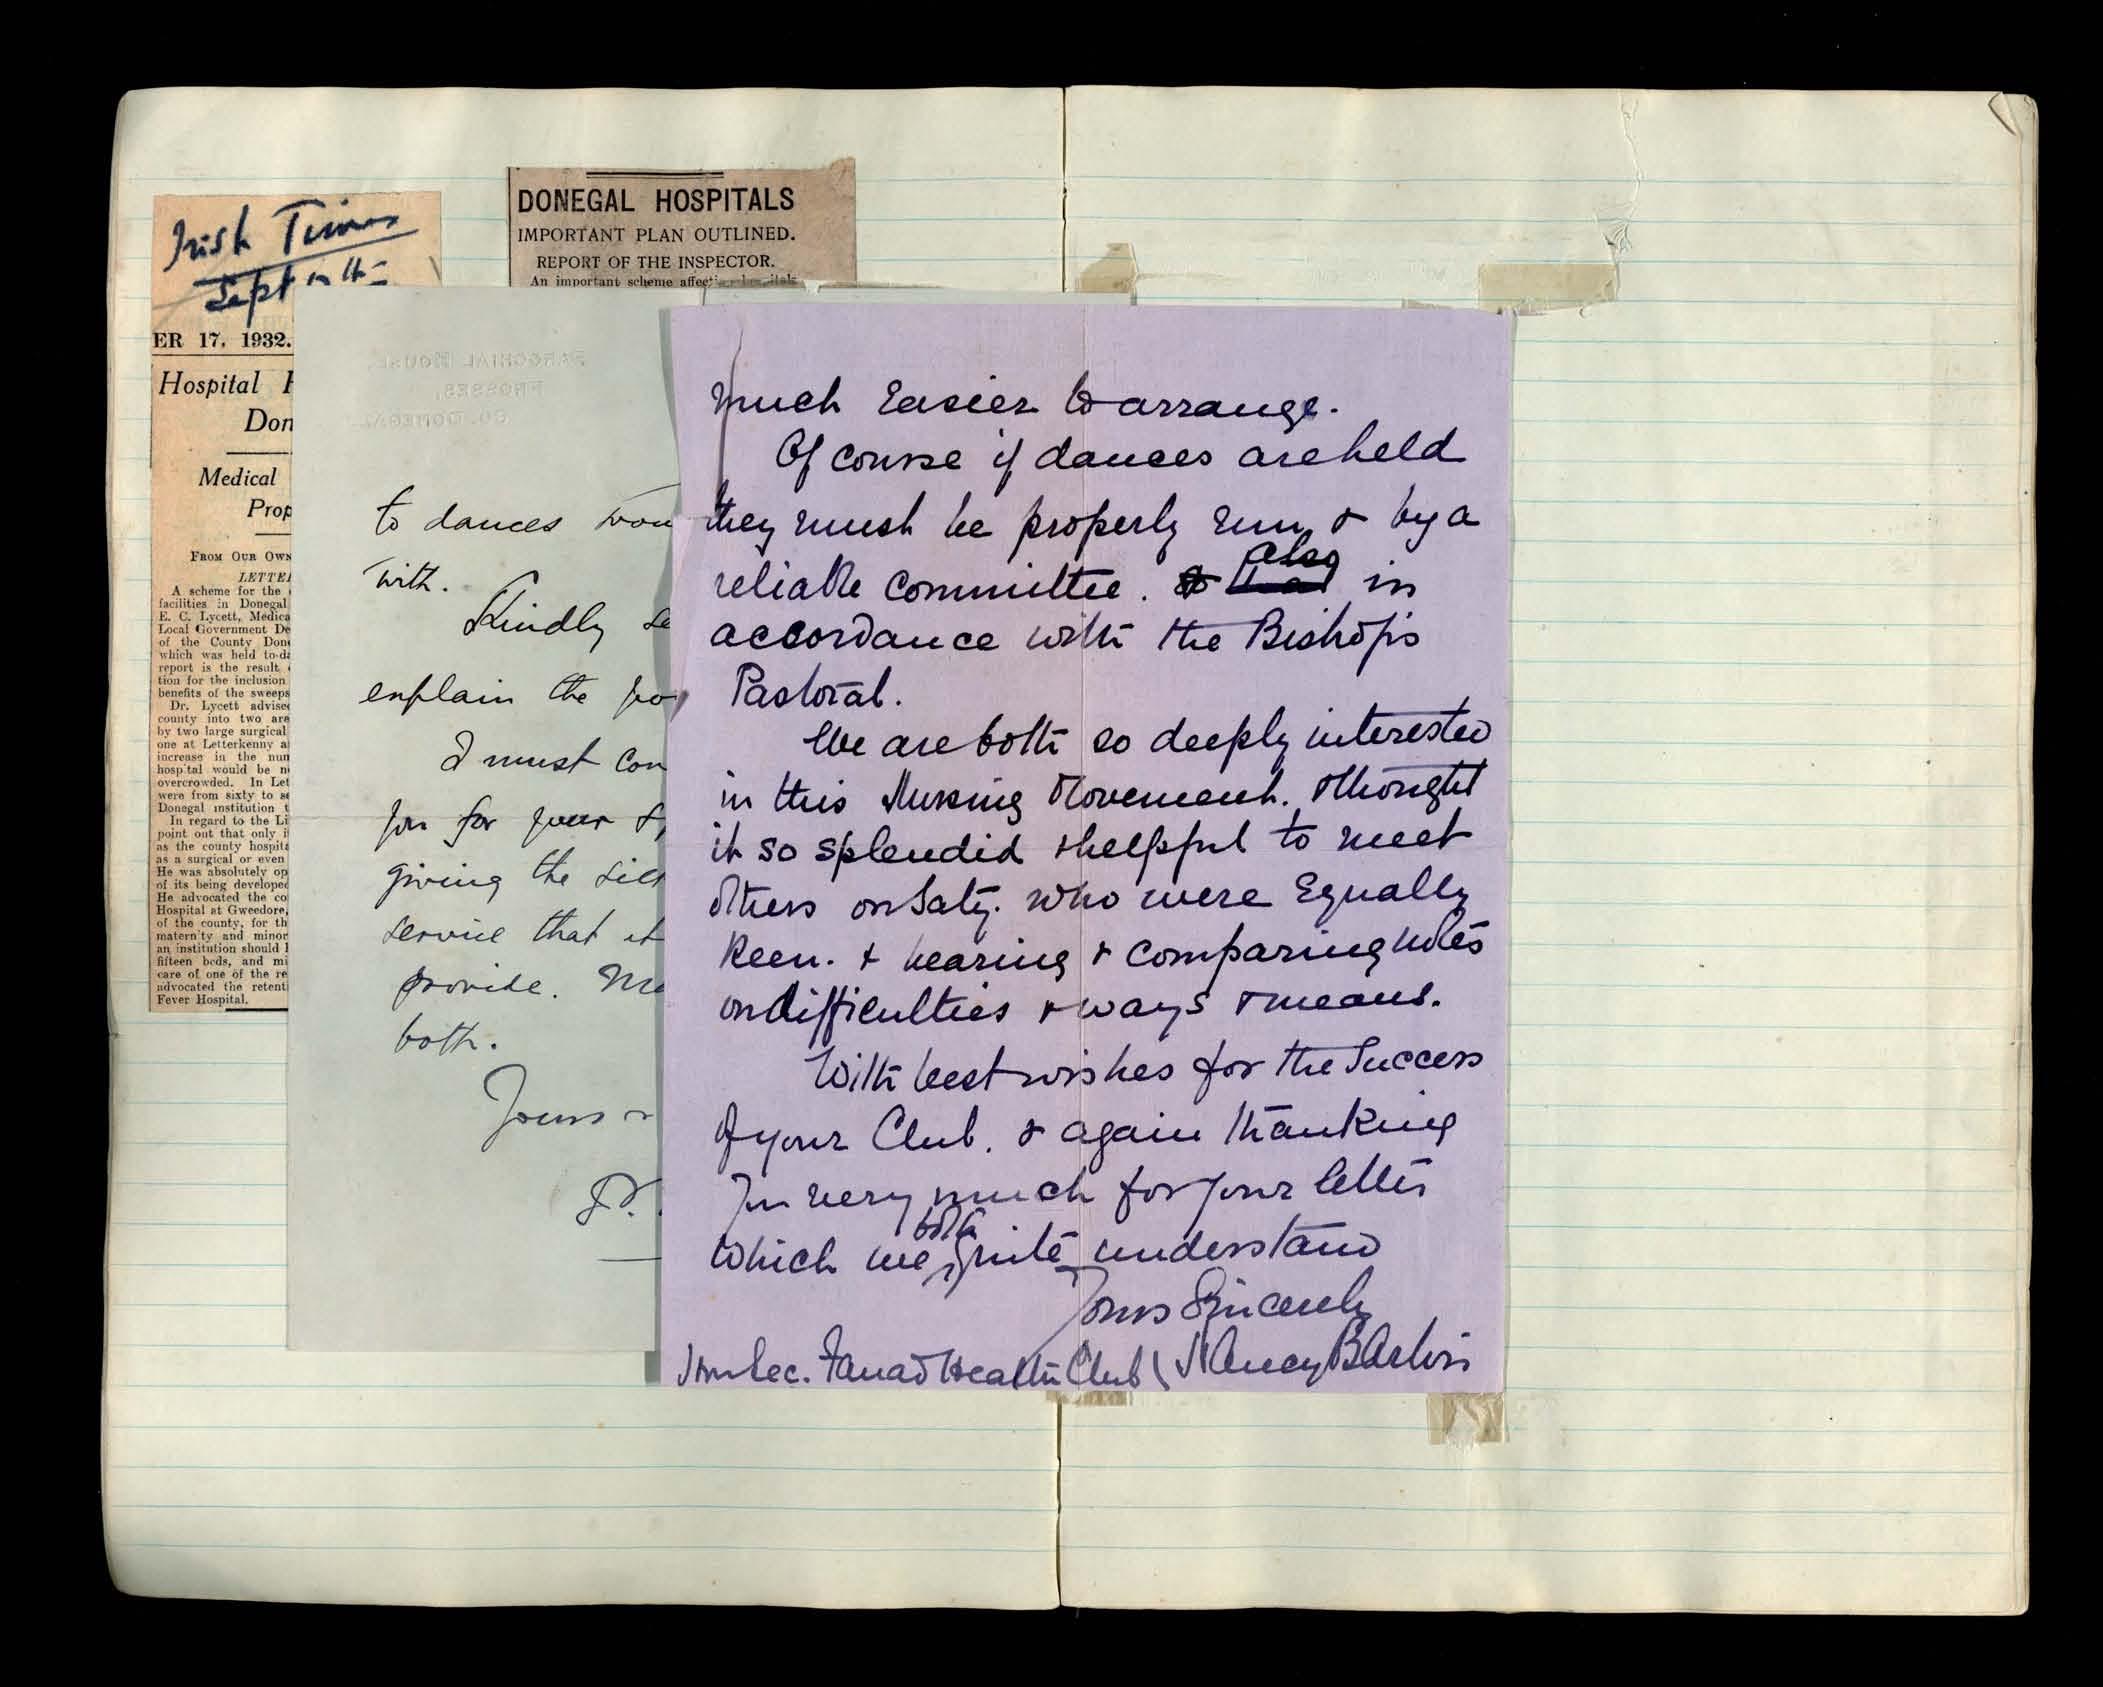 Irish Times
Sept 17th
ER 17, 1932.
Hospital
Don
Medical
Prop
FROM OUR OWN
LETTE
A scheme for the
facilities in Donegal
E. C. Lycett, Medica
Local Government De
of the County Don
which was held to-da
report is the result
tion for the inclusion
benefits of the sweeps
Dr. Lycett advise
county into two are
by two large surgical
one at Letterkenny a
increase in the nu
hospital would be n
overcrowded. In Let
were from sixty to s
Donegal institution t
In regard to the Li
point out that only i
as the county hospita
as a surgical or even
He was absolutely op
of its being developed
He advocated the co
Hospital at Gweedore,
of the county, for th
maternity and minor
an institution should
fifteen beds, and mi
care of one of the re
advocated the retenti
Fever Hospital.
DONEGAL HOSPITALS
IMPORTANT PLAN OUTLINED.
REPORT OF THE INSPECTOR.
An important scheme affecting hospitals
PAROCHIAL HOUSE,
FROSSES,
CO. DONEGAL.
to dances wou
with.
Kindly
explain the po
I must con
you for your
giving the sick
service that it
provide. Me
both.
Yours
much Easier to arrange.
Of course if dances are held
they must be properly run & by a
reliable committee. also in
accordance with the Bishop's
Pastoral.
We are both so deeply interested
in this Nursing Movement. & thought
it so splendid & helpful to meet
others on Saty. who were Equally
Keen. & hearing & comparing notes
on difficulties & ways & means.
With best wishes for the Success
of your Club. & again thanking
you very much for your letter
which we both quite understand
Yours Sincerely
Hon Sec. Fanad Health Club Nancy